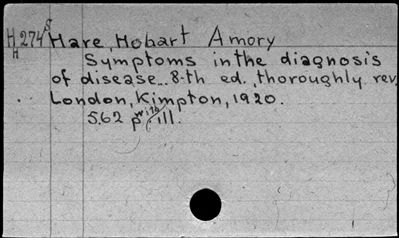 H 274 S Hare, Hobart Amory
H Symptoms in the diagnosis
of disease... 8-th ed., thoroughly rev.
London, Kimpton, 1920.
562 p. with ill.